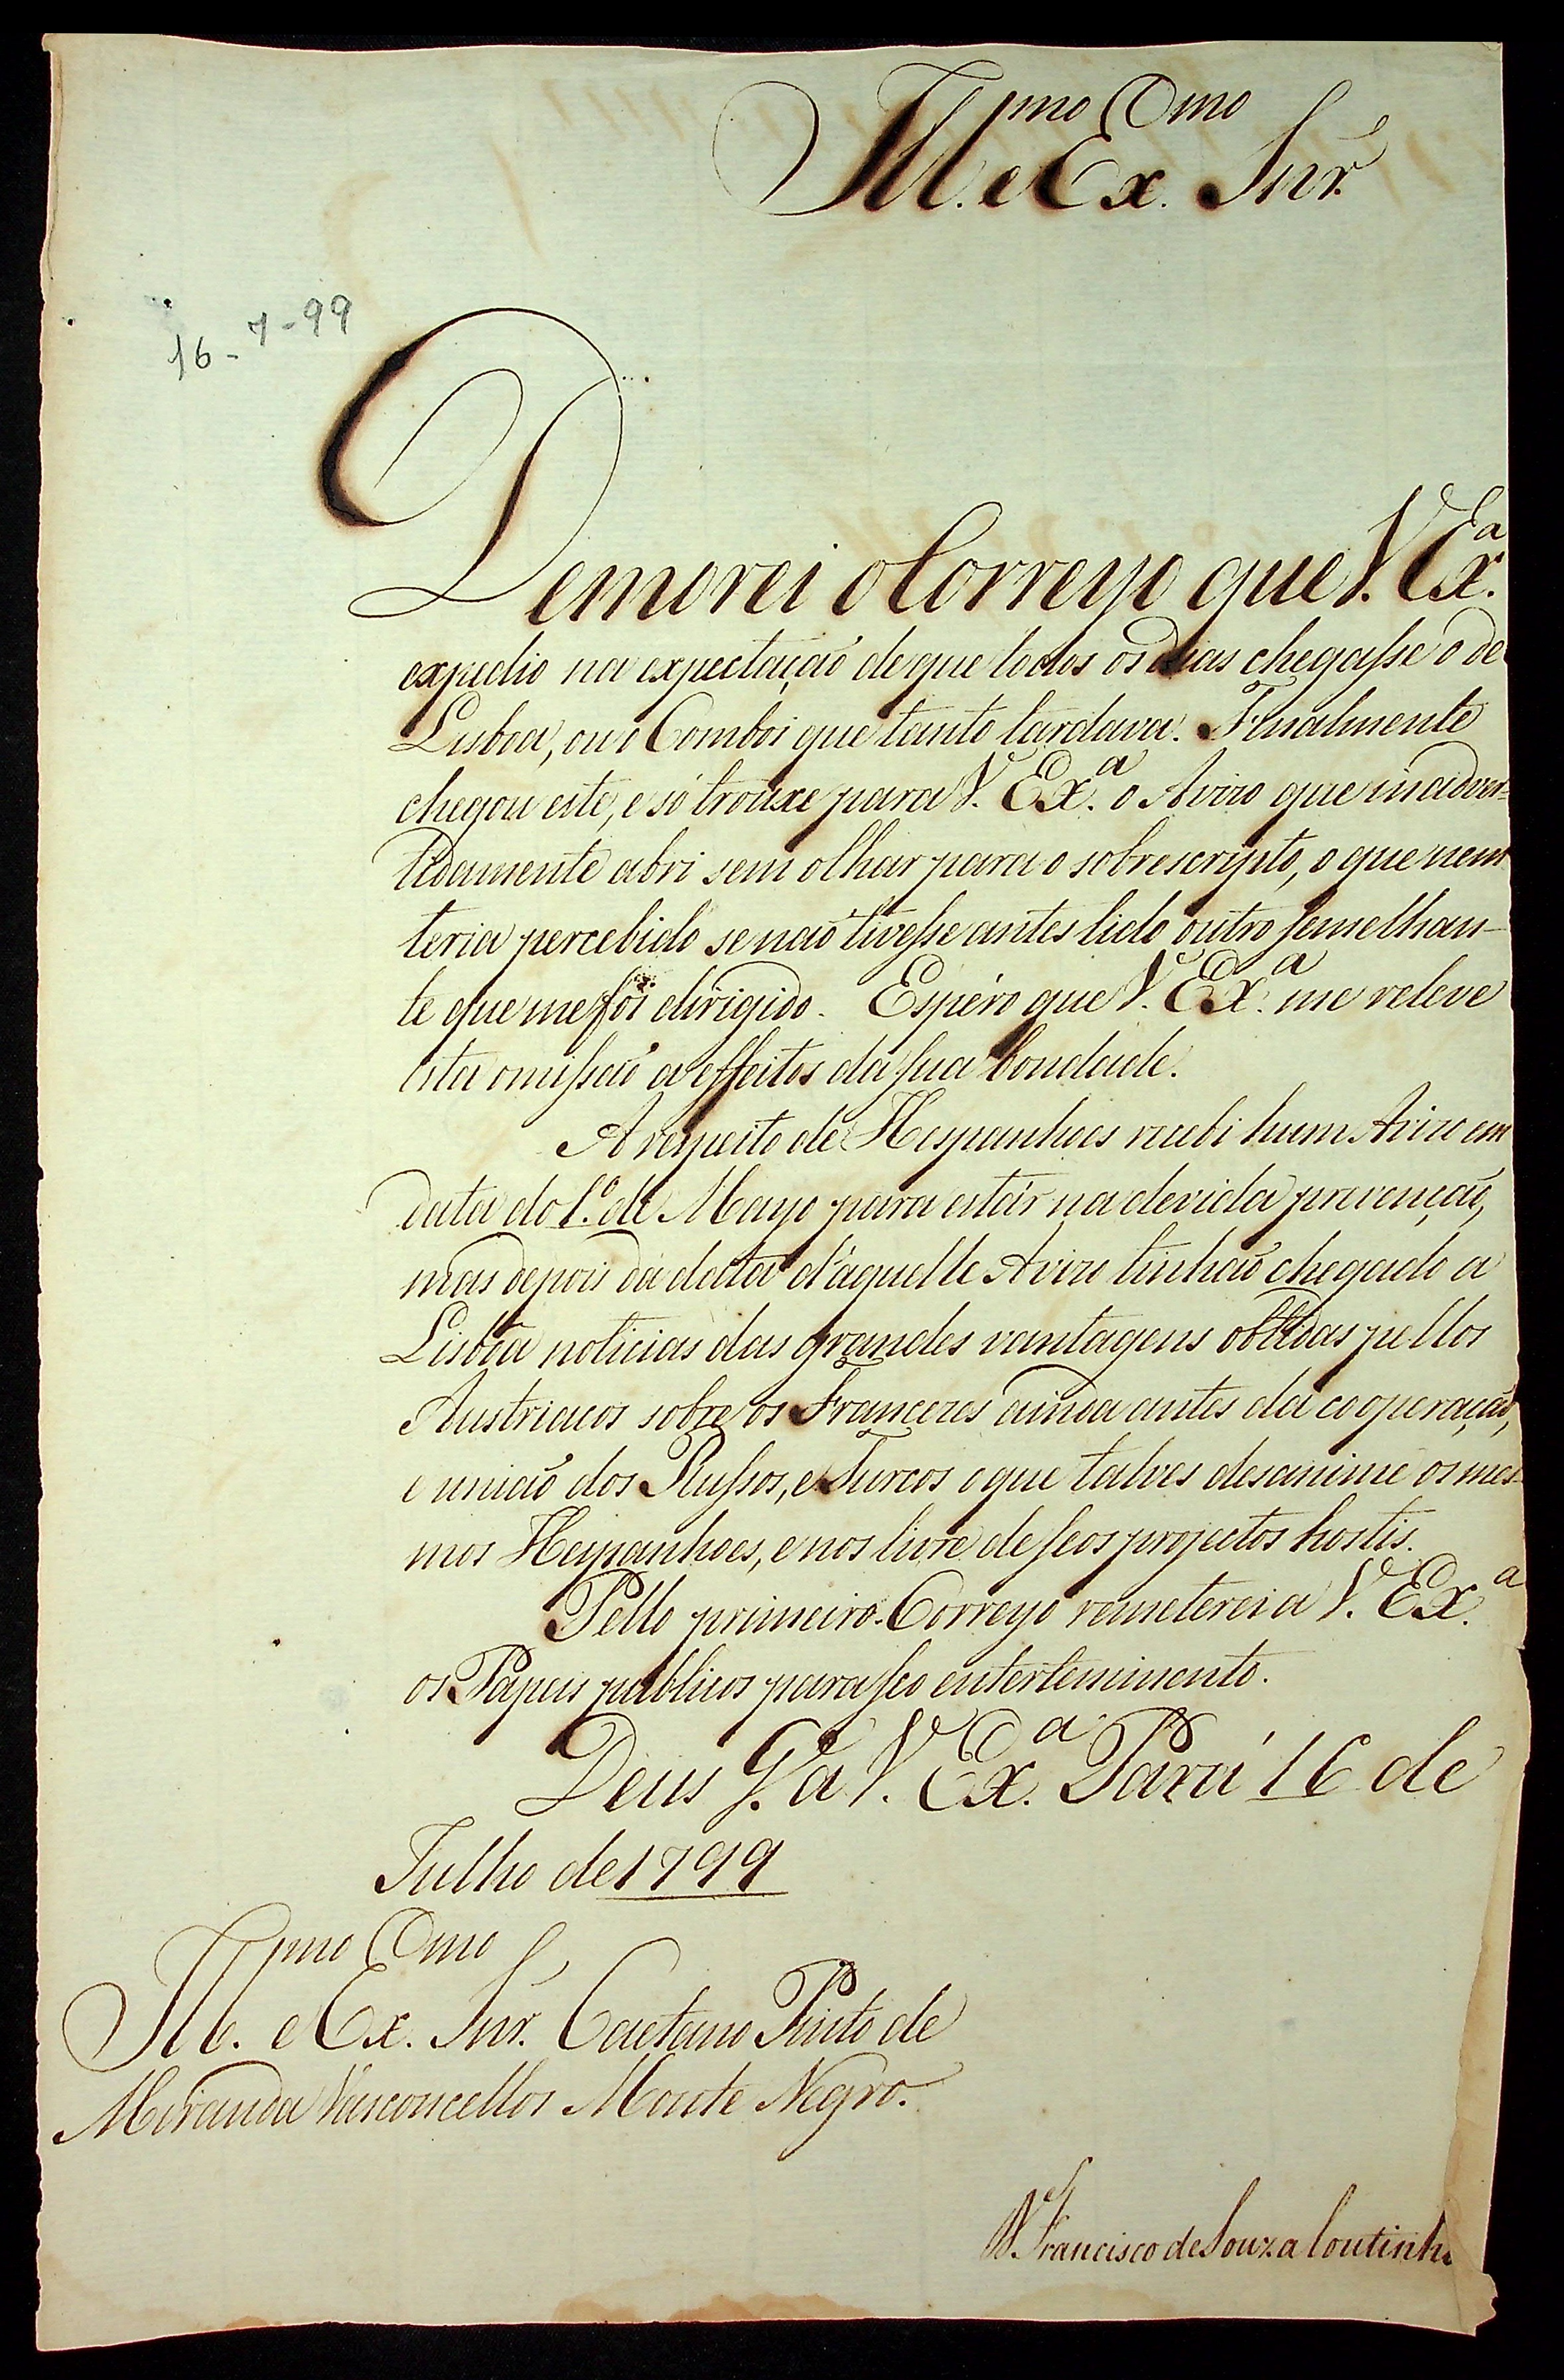 Ill.mo e Ex.mo Snr.
16-7-99
Demorei o Correyo que V. Ex.a
expedio na expectaçaõ de que todos os Dias chegasse o de
Lisboa, ou o Comboi que tanto tardava. Finalmente
chegou este, e só trouxe para V. Ex.a o Avizo que inadver-
tidamente abri sem olhar para o sobrescripto, o que nem
teria percebido se naõ tivesse antes lido outro semelhan-
te que me foi dirigido. Espéro que V. Ex.a me releve
esta omissaõ a effeitos da sua bondade.
A respeito de Hespanhoes recebi hum Avizo em
data do 1.º de Mayo para estár na devida prevençaõ,
mas depois da data d'aquelle Avizo tinhaõ chegado a
Lisboa noticias das grandes vantagens obtidas pellos
Austriacos sobre os Francezes ainda antes da cooperaçaõ,
e uniaõ dos Russos, e Turcos o que talves desanime os mes-
mos Hespanhoes, e nos livre de seos projectos hostis.
Pello primeiro Correyo remeterei a V. Ex.a
os Papeis publicos para seo entertenimento.
Deus G. a V. Ex.a Pará 16 de
Julho de 1799
Ill.mo e Ex.mo Snr. Caetano Pinto de
Miranda Vasconcellos Monte Negro.
D. Francisco de Souza Coutinho